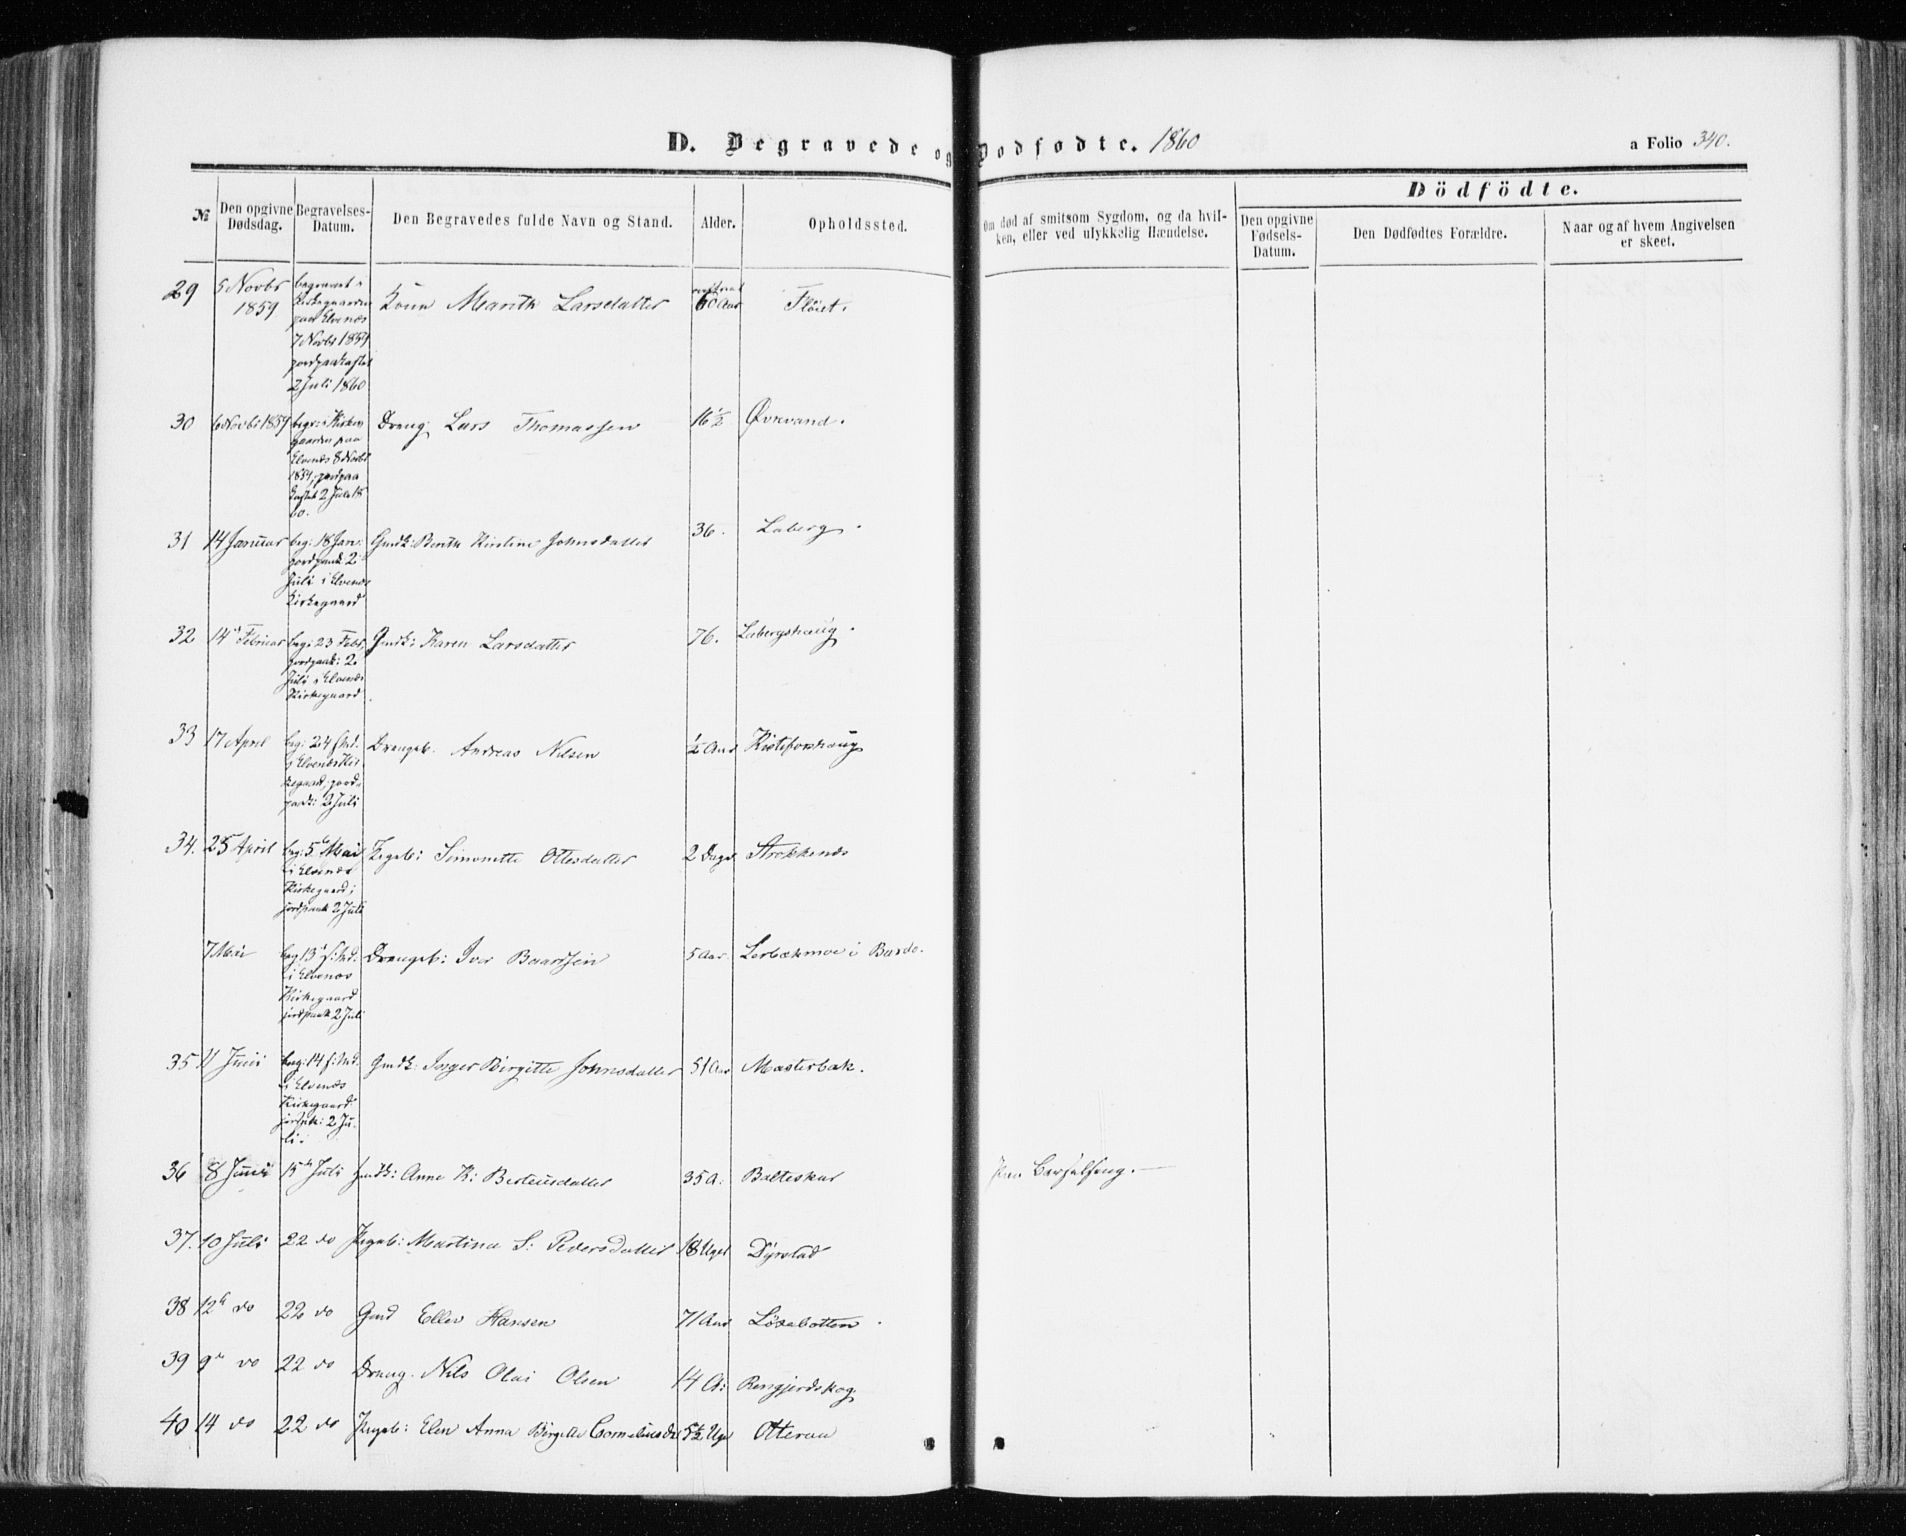 D. Begravede og Dødfødte. 1860
a Folio 340.
№
Den opgivne Dødsdag.
Begravelses-Datum.
Den Begravedes fulde Navn og Stand.
Alder.
Opholdssted.
Om død af smitsom Sygdom, og da hvil-
ken, eller ved ulykkelig Hændelse.
Dödfödte.
Den opgivne Fødsels-Datum.
Den Dødfødtes Forældre.
Naar og af hvem Angivelsen er skeet.
29 5 Novbr Kone Marith Larsdatter 60 Aar Fløiet.
1859
begravet i
Kirkegaarden
paa Elvenæs
7 Novbr 1859
jordpaakastet
2 Juli 1860
30 6 Novbr 1859 begr: i Kirke Dreng Lars Thomassen 16½ Øvrevand.
gaarden paa
Elvenæs 8 Novbr
1859, jordpaa
kastet 2 Juli 18
60.
31 14 Januar beg: 18 Jan: Gmdk: Berith Kirstine Johnsdatter 36. Laberg.
jordpaak 2
Juli i Elvenæs
Kirkegaard
32 14 Februar beg: 23 Febr, Gmdk: Karen Larsdatter 76. Labergshaug.
jordpaak: 2
Juli i Elvenæs
Kirkegaard.
33 17 April beg: 24 s. Md. Drengeb. Andreas Nilsen ½ Aar Kistefoshaug
i Elvenæs Kir
kegaard, jord-
paak: 2 Juli
34. 25 April beg: 5 Mai Pigeb: Simonette Ottesdatter 2 Dage Strokkenæs
i Elvenæs
Kirkegaard;
jordpaak 2 Juli
7 Mai beg 13 s: Md. Drengeb: Iver Baardsen 5 Aar. Lerbækmoe i Bardo.
i Elvenæs
Kirkegaard
jordpaak 2 Juli
35 11 Juni beg: 14 s: Md. Gmdk: Inger Birgitte Johnsdatter 51 Aar Mæsterbæk.
i Elvenæs
Kirkegaard
jordpk: 2 Ju-
li.
36 8 Juni 15 Juli Gmdk: Anne K: Berteusdatter 35 A: Balteskar Paa Barselseng.
37. 10 Juli 22 do Pigeb: Martina S: Pedersdatter 18 Uger Dyrstad
38 12 do 22 do Gmd Eller Hansen 71 Aar Løxebotten.
39 9 do 22 do Dreng. Nils Olai Olsen 14 A: Rengjerdskog
40 14 do 22 do Pigeb: Elen Anna Birgitte Corneliusdr 5½ Uge Otteraa